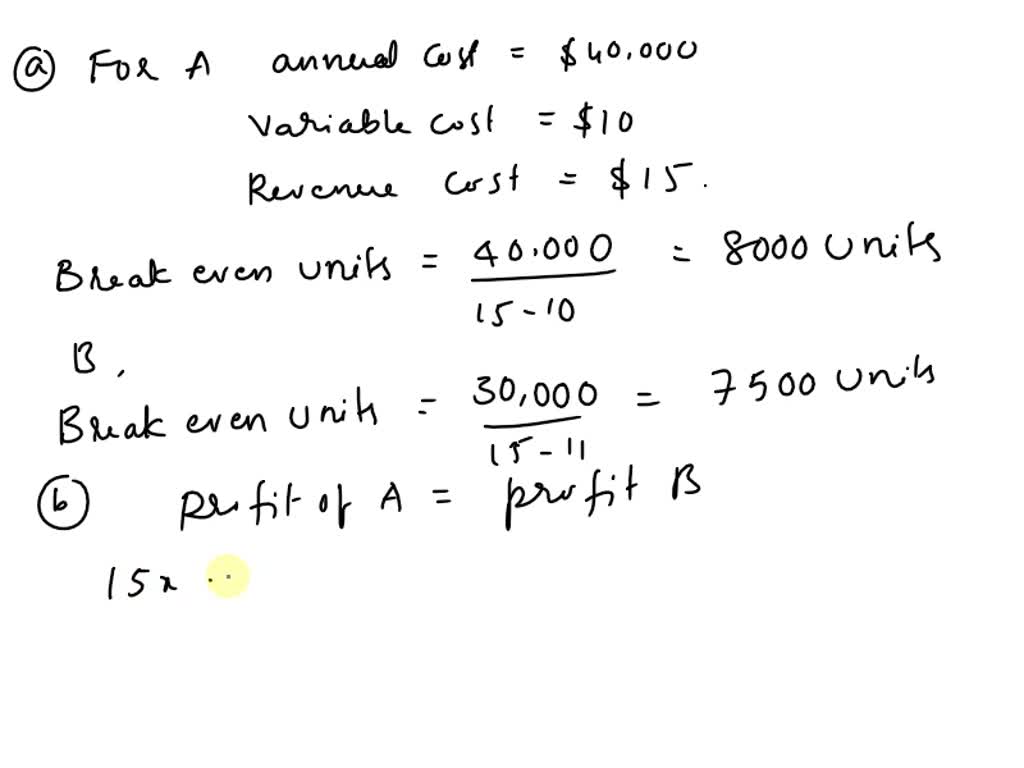 (a) For A annual cost = $40.000
Variable cost = $10
Revenue cost = $15.
Break even units = 40.000 / 15-10 = 8000 units
B,
Break even units = 30,000 / 15-11 = 7500 units
(b) profit of A = profit B
15x -